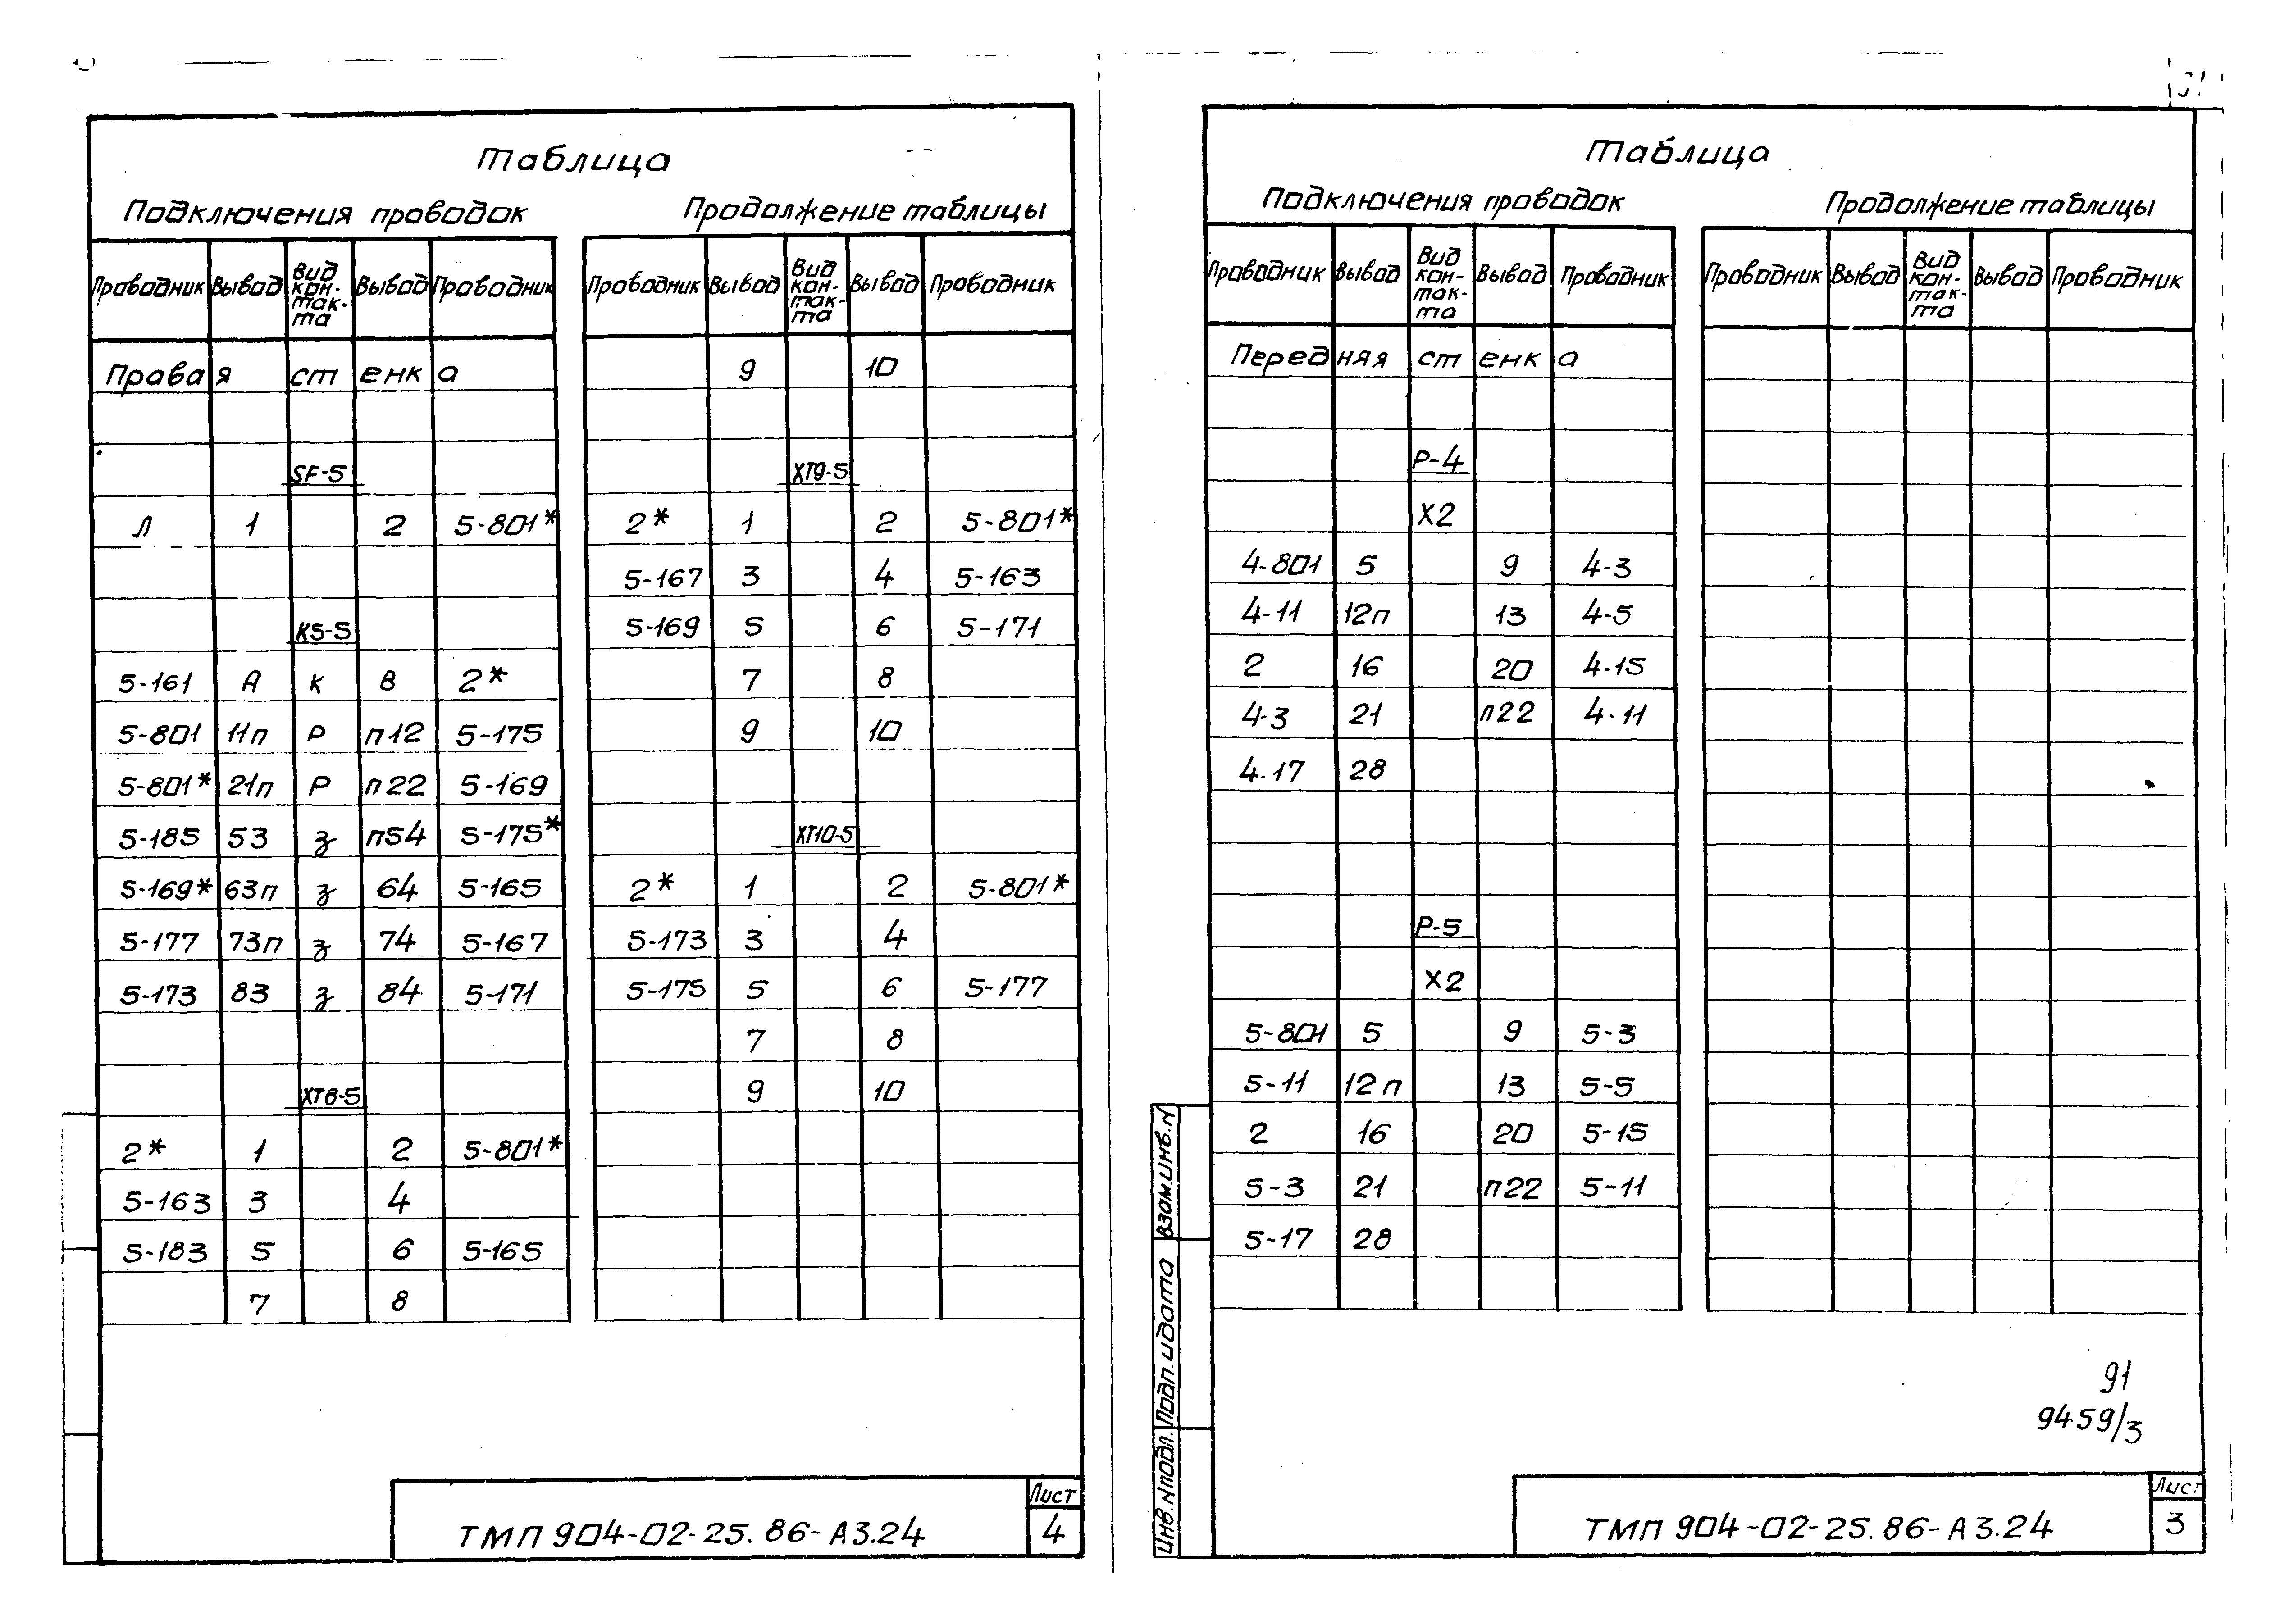 Таблица
Подключения проводок
Проводник Вывод Вид кон-так-та Вывод Проводник
Правая стенка
SF-5
Л 1 2 5-801*
К5-5
5-161 А К В 2*
5-801 11п Р п12 5-175
5-801* 21п Р п22 5-169
5-185 53 з п54 5-175*
5-169* 63п з 64 5-165
5-177 73п з 74 5-167
5-173 83 з 84 5-171
ХТ8-5
2* 1 2 5-801*
5-163 3 4
5-183 5 6 5-165
7 8
Продолжение таблицы
Проводник Вывод Вид кон-так-та Вывод Проводник
9 10
ХТ9-5
2* 1 2 5-801*
5-167 3 4 5-163
5-169 5 6 5-171
7 8
9 10
ХТ10-5
2* 1 2 5-801*
5-173 3 4
5-175 5 6 5-177
7 8
9 10
ТМП 904-02-25.86-А3.24
Лист
4
Таблица
Подключения проводок
Проводник Вывод Вид кон-так-та Вывод Проводник
Передняя стенка
Р-4
Х2
4-801 5 9 4-3
4-11 12п 13 4-5
2 16 20 4-15
4-3 21 п22 4-11
4-17 28
Р-5
Х2
5-801 5 9 5-3
5-11 12п 13 5-5
2 16 20 5-15
5-3 21 п22 5-11
5-17 28
Продолжение таблицы
Проводник Вывод Вид кон-так-та Вывод Проводник
91
9459/3
Взам.инв.N
Подп. и дата
Инв.Nподл.
ТМП 904-02-25.86-А3.24
Лист
3